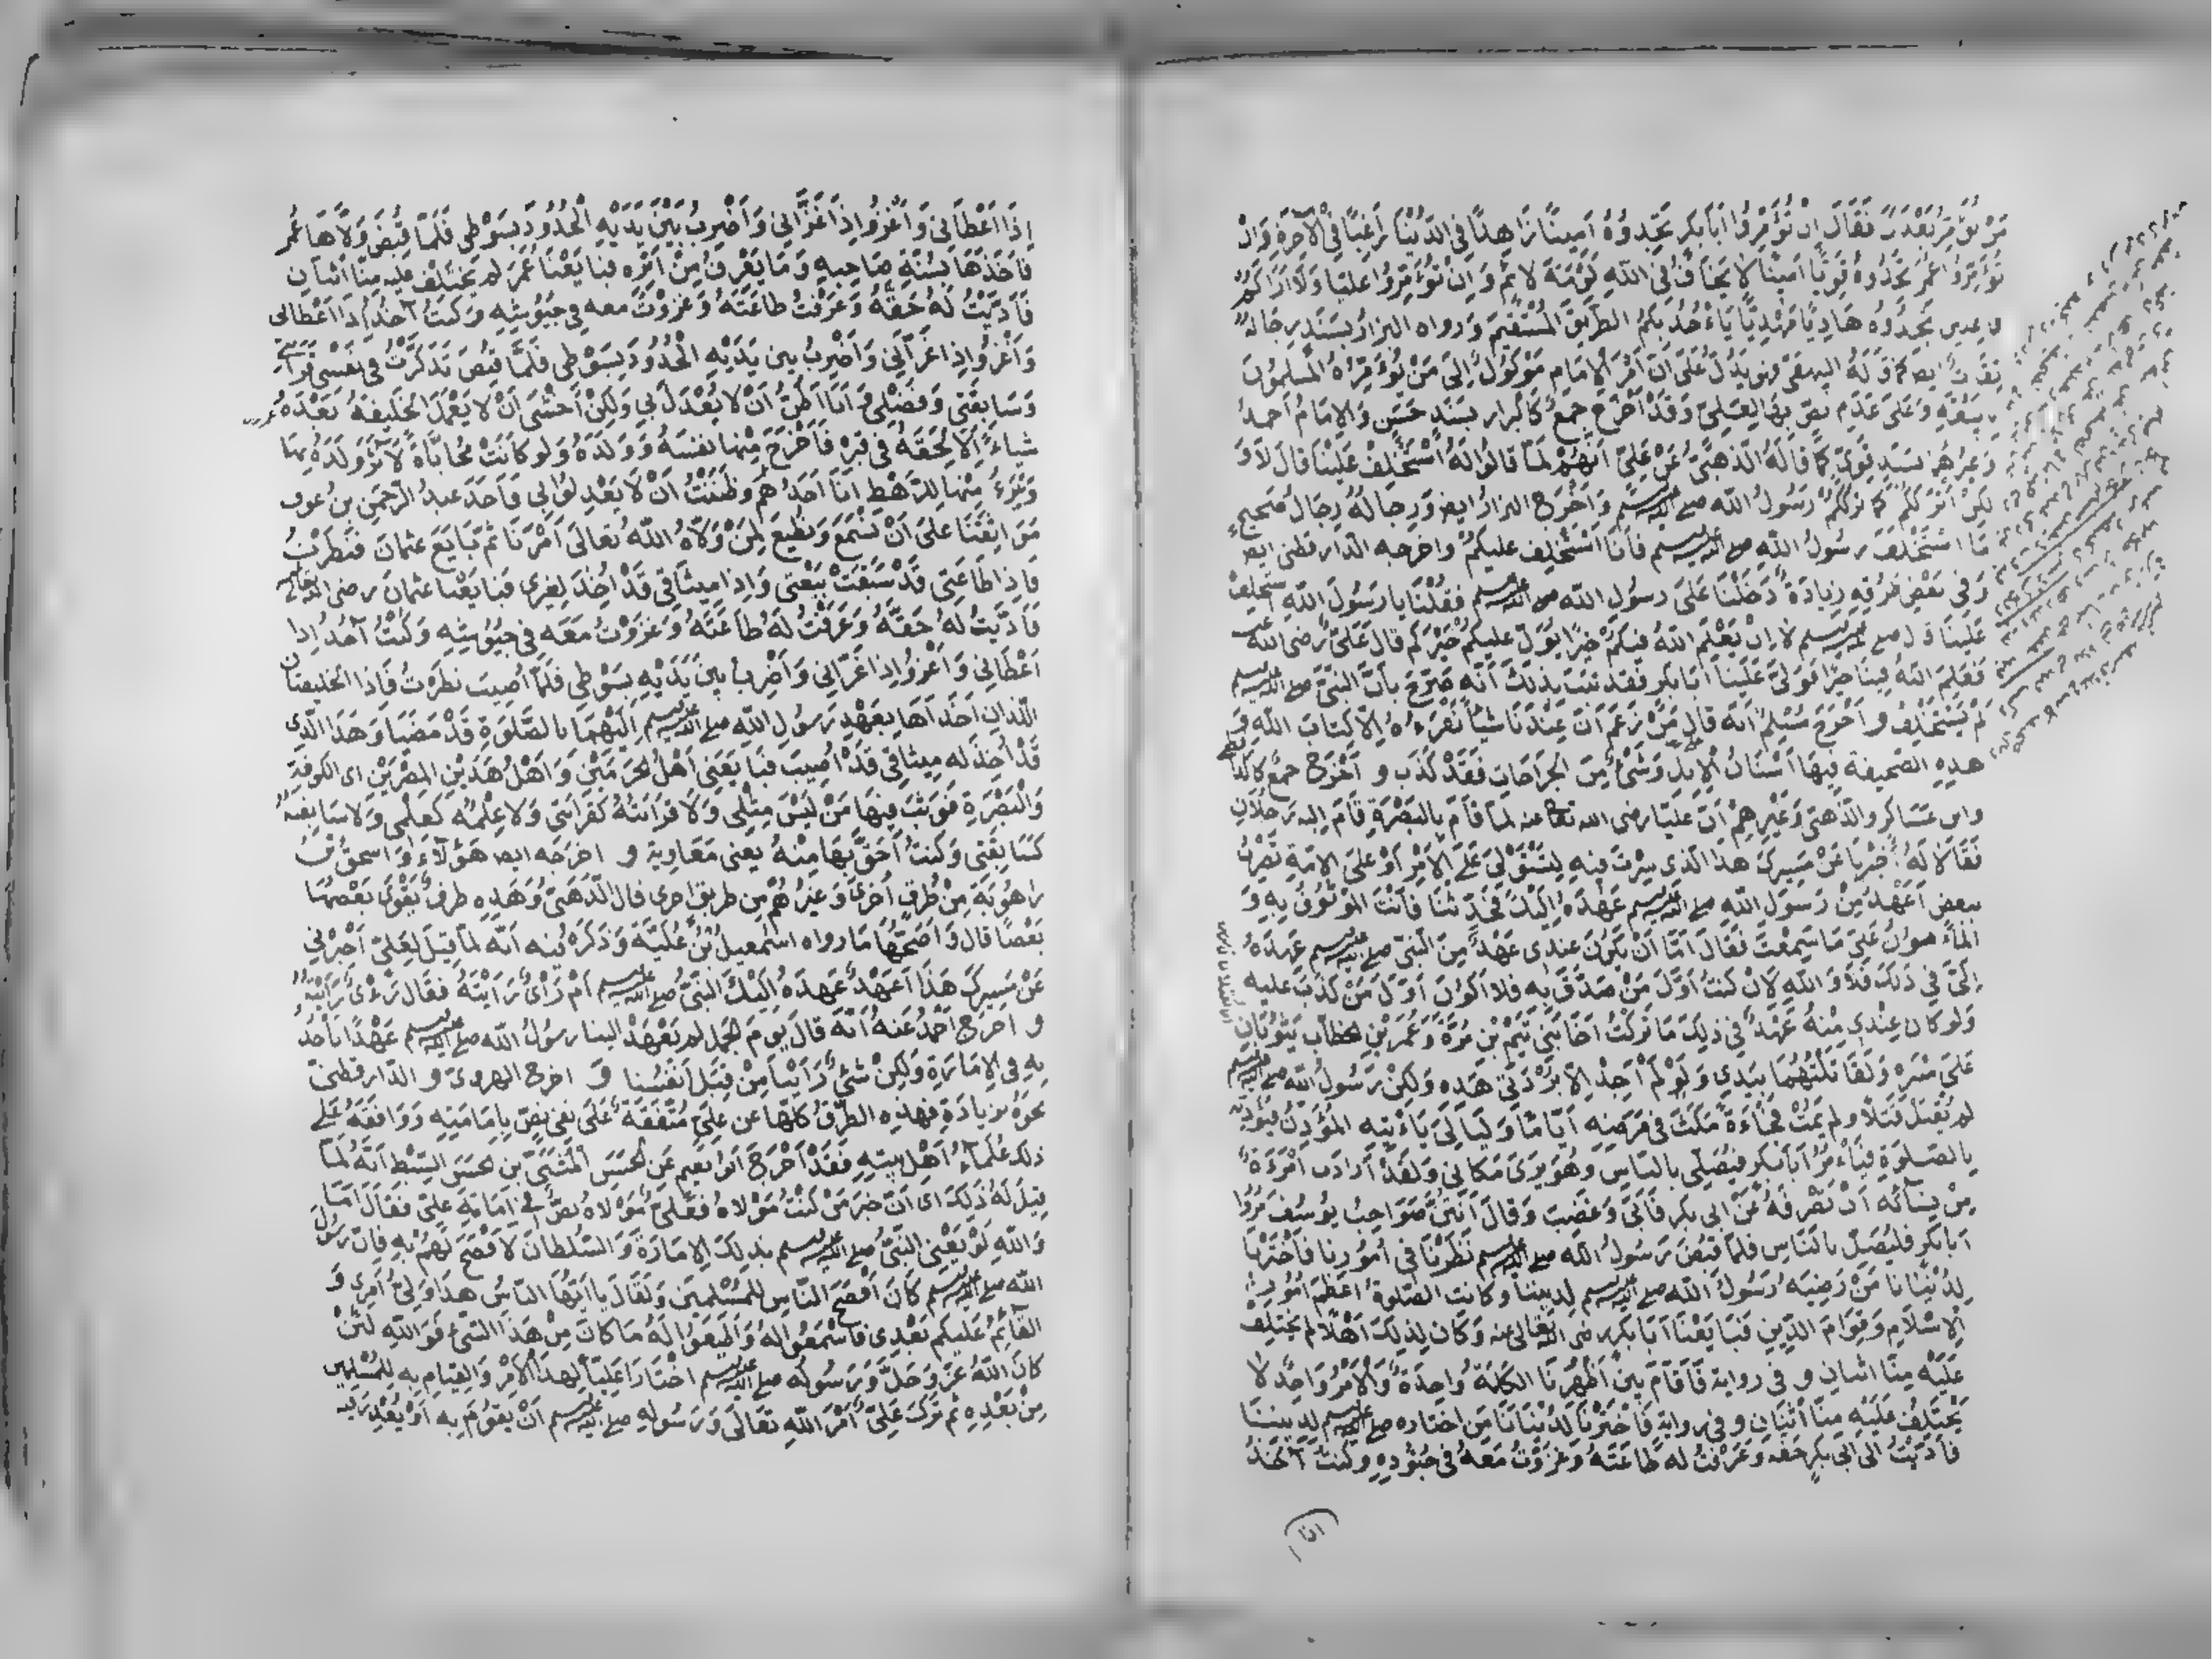 مَنْ نُؤَمِّرُ بَعْدَكَ فَقَالَ اِنْ تُؤَمِّرُوا اَبَا بَكر تَجِدُوهُ اَمِينًا زَاهِدًا فِي الدُّنْيَا رَاغِبًا فِي الْآخِرَةِ وَاِنْ
تُؤَمِّرُوا عُمَرَ تَجِدُوهُ قَوِيًّا اَمِينًا لَا يَخَافُ فِي اللّٰهِ لَوْمَةَ لَائِمٍ وَاِنْ تُؤَمِّرُوا عَلِيًّا وَلَا اَرَاكُمْ
فاعلين تَجِدُوهُ هَادِيًا مَهْدِيًّا يَاْخُذُ بِكُمُ الطَّرِيقَ الْمُسْتَقِيمَ وَرواه البزار بِسَنَدٍ رِجَالُهُ
ثِقَات ايضا كما قَالَهُ البيهقي فهو يَدُلُّ عَلَى اَنَّ اَمْرَ الْاِمَامِ مَوْكُولٌ اِلَى مَنْ يُؤَمِّرُهُ الْمُسْلِمُونَ
بِبَيْعَةٍ وَعَلَى عَدَمِ نص بها لِعَلِيٍّ وَقَدْ اَخْرَجَ جَمْعٌ كَالبزار بِسَنَدٍ حَسَنٍ وَالاِمَامُ اَحمد
وَغَيْرُهُمَا بسَنَدٍ قَوِيٍّ كَمَا قَالَهُ الذَّهَبِيُّ عَنْ عَلِيٍّ اَنَّهُمْ لَمَّا قَالُوا لَهُ اسْتَخْلِفْ عَلَيْنَا قَالَ لَا وَ
لَكِنْ اَتْرُكُكُمْ كَمَا تَرَكَكُمْ رَسُولُ اللّٰه صلى الله عليه وسلم وَاَخْرَج البزارُ ايضا وَرِجَالُهُ رِجَالُ الصَّحِيحِ
مَا اسْتَخْلَفَ رَسُولُ اللّٰه صلى الله عليه وسلم فَاَنَا اسْتَخْلِف عَليكُمْ واخرجه الدارقطني ايضا
وَفِي بَعْضِ طُرُقِهِ زِيَادَةٌ دَخَلْنَا عَلَى رسولِ اللّٰه صلى الله عليه وسلم فَقُلْنَا يا رَسُولَ اللّٰه اسْتَخْلِفْ
عَلَينَا قال صلى الله عليه وسلم لا اِنْ يَعْلَمِ اللّٰهُ فِيكُمْ خَيْرًا يُوَلِّ عَلَيكُم خَيْرَكُم قَالَ عَلِيٌّ رَضِيَ اللّٰه عنه
فَعَلِمَ اللّٰهُ فِينَا خَيْرًا فَوَلَّى عَلَيْنَا اَبَا بَكر فَقَد ثَبَتَ بِذَلِكَ اَنَّه صَرَّحَ بِاَنَّ النَّبِيَّ صلى الله عليه وسلم
لَمْ يَسْتَخْلِفْ و اَخْرَجَ مُسْلِمٌ اَنَّهُ قَالَ مَنْ زَعَمَ اَنَّ عِنْدَنَا شَيْئًا نَقْرَءُهُ اِلَّا كِتَابَ اللّٰهِ وَ
هذِهِ الصَّحِيفَةَ فِيهَا اَسْنَانُ الْاِبِلِ وَشَيْءٌ مِنَ الْجِرَاحَاتِ فَقَدْ كَذَبَ و اَخْرَجَ جَمْعٌ كَالدارقطني
وابن عَسَاكِر وَالذَّهبي وَغَيْرِهِمْ اَنَّ عَلِيًّا رضي الله تعالى عنه لَمَّا قَامَ بِالبَصْرَةِ قَامَ اِلَيهِ رَجُلَانِ
فَقَالَا لَهُ اَخْبِرْنَا عَنْ مَسِيرِكَ هذَا الَّذي سِرْتَ فِيهِ لِتَسْتَوْلِيَ عَلَى الْاَمْرِ اَوْ عَلَى الاُمَّةِ تَضْرِبُ
بعضها ببعض اَعَهْدٌ مِنْ رَسُولِ اللّٰه صلى الله عليه وسلم عَهِدَهُ اِلَيْكَ فَحَدِّثْنَا فَاَنْتَ الْمَوْثُوقُ بِهِ وَ
الْمَاْمُونُ عَلَى مَا سَمِعْتَ فَقَالَ اَمَّا اَنْ يَكُونَ عِنْدِي عَهْدٌ مِنَ النَّبِيِّ صلى الله عليه وسلم عَهِدَهُ
اِلَيَّ فِي ذَلِكَ فَلَا وَاللّٰهِ لَاِنْ كُنْتُ اَوَّلَ مَنْ صَدَّقَ بِهِ فَلَا اَكُونُ اَوَّلَ مَنْ كَذَبَ عَلَيهِ
وَلَو كَانَ عِنْدِي مِنْهُ عَهْدٌ فِي ذلِكَ مَا تَرَكْتُ اَخَا بَنِي تَيْمِ بْنِ مُرَّةَ وَعُمَرَ بْنَ الخطاب يَثُوبَانِ
عَلَى مِنْبَرِهِ وَلَقَاتَلْتُهُمَا بِيَدِي وَلَوْ لَمْ اَجِدْ اِلَّا بُرْدَتِي هَذِهِ وَلَكِنْ رَسُولُ اللّٰهِ صلى الله عليه وسلم
لَم يُقْتَلْ قَتْلًا وَلم يَمُتْ فُجَاءَةً مَكَثَ فِي مَرَضِهِ اَيَّامًا وَلَيَالِيَ يَاْتِيهِ الْمُؤَذِّنُ فَيُؤْذِنُهُ
بِالصَّلوةِ فَيَاْمُرُ اَبَا بَكر فَيُصَلِّي بِالنَّاسِ وَهُوَ يَرَى مَكَانِي وَلَقَدْ اَرَادَتِ امْرَءَةٌ
مِنْ نِسَائِهِ اَنْ تَصْرِفَهُ عَنْ اَبِي بكر فَاَبَى وَغَضِبَ وَقَالَ اَنْتُنَّ صَوَاحِبُ يُوسُفَ مُرُوا
اَبَا بَكرٍ فَليُصَلِّ بِالنَّاسِ فَلَمَّا قُبِضَ رَسُولُ اللّٰه صلى الله عليه وسلم نَظَرْنَا فِي اُمُورِنَا فَاخْتَرْنَا
لِدُنْيَانَا مَنْ رَضِيَهُ رَسُولُ اللّٰه صلى الله عليه وسلم لِدِينِنَا وَكَانَت الصَّلوةُ اَعْظَمَ اُمُورِ
الْاِسْلَامِ وَقِوَامَ الدِّينِ فَبَايَعْنَا اَبَا بَكر رضي الله تعالى عنه وَكَان لِذلِكَ اَهْلًا لَم يَخْتَلِفْ
عَلَيْهِ مِنَّا اثنان و في رواية فَاَقَامَ بَيْنَ اَظْهُرِنَا الكَلِمَةُ وَاحِدَةٌ وَالْاَمْرُ وَاحِدٌ لَا
يَخْتَلِفُ عَلَيْهِ مِنَّا اثْنَانِ و في رواية فَاخْتَرْنَا لِدُنْيَانَا مَنِ اخْتَاره صلى الله عليه وسلم لِدِينِنَا
فَاَدَّيْتُ اِلَى اَبِي بَكرٍ حَقَّهُ وَعَرَفْتُ لَهُ طَاعَتَهُ وَغَزَوْتُ مَعَهُ فِي جُنُودِهِ وَكُنْتُ اٰخُذُ
اِذَا اَعْطَانِي وَاَغْزُو اِذَا غَزَانِي وَاَضْرِبُ بَيْنَ يَدَيْهِ الْحُدُودَ بِسَوْطِي فَلَمَّا قُبِضَ وَلَّاهَا عُمَر
فَاَخَذَهَا بِسُنَّةِ صَاحِبِهِ وَمَا يَعْرِفُ مِنْ اَمْرِهِ فَبَايَعْنَا عُمَرَ لَم يَخْتَلِفْ عَلَيه مِنَّا اثْنَانِ
فَاَدَّيْتُ لَهُ حَقَّهُ وَعَرَفْتُ طَاعَتَهُ وَغَزَوْتُ معه فِي جُيُوشِهِ وَكُنْتُ اٰخُذُ اِذَا اَعْطَاني
وَاَغْزُو اِذَا غَزَانِي وَاَضْرِبُ بين يَدَيْهِ الْحُدُودَ بِسَوْطِي فَلَمَّا قُبِضَ تَذَكَّرْتُ فِي نَفْسِي قَرَابَتِي
وَسَابِقَتِي وَفَضْلِي وَاَنَا اَظُنُّ اَنْ لَا يُعْدَلَ بِي وَلَكِنْ اَخْشَى اَنْ لَا يَعْمَلَ الْخَلِيفَةُ بَعْدَهُ
شيئا اِلَّا لَحِقَهُ فِي قَبْرِهِ فَاَخْرَجَ مِنْهَا نَفْسَهُ وَوَلَدَهُ وَلَو كَانَتْ مُحَابَاةً لَاٰثَرَ وَلَدَهُ بِهَا
وَبَرِئَ مِنْهَا لِرَهْطٍ اَنَا اَحَدُهُم وَظَنَنْتُ اَنْ لَا يَعْدِلُوا بِي فَاَخَذَ عبدُ الرَّحمن بنُ عوف
مَوَاثِيقَنَا عَلَى اَنْ نَسْمَعَ وَنُطِيعَ لِمَنْ وَلَّاهُ اللّٰهُ تَعَالَى اَمْرَنَا ثُمَّ بَايَعَ عُثمانَ فَنَظَرْتُ
فَاِذَا طَاعَتِي قَدْ سَبَقَتْ بَيْعَتِي وَاِذَا مِيثَاقِي قَدْ اُخِذَ لِغَيْري فَبَايَعْنَا عُثمَانَ رضي الله تعالى عنه
فَاَدَّيْتُ لَهُ حَقَّهُ وَعَرَفْتُ لَهُ طَاعَتَهُ وَغَزَوْتُ مَعَهُ فِي جُيُوشِهِ وَكُنْتُ اٰخُذُ اِذَا
اَعْطَانِي وَاَغْزُو اِذَا غَزَانِي وَاَضْرِبُ بَينَ يَدَيْهِ بِسَوْطِي فَلَمَّا اُصِيبَ نَظَرْتُ فَاِذَا الْخَلِيفتان
اللَّذانِ اَخَذَاهَا بِعَهْدِ رَسُولِ اللّٰه صلى الله عليه وسلم اِلَيْهِمَا بالصَّلوةِ قَدْ مَضَيَا وَهَذَا الَّذي
قَدْ اُخِذَ لَه مِيثَاقِي قَدْ اُصِيبَ فَبَايَعَنِي اَهْلُ الْحَرَمَيْنِ وَاَهْلُ هَذَيْنِ الْمِصْرَيْنِ اي الكوفة
وَالْبَصْرَةِ فَوَثَبَ فِيهَا مَنْ لَيْسَ مِثْلِي وَلَا قَرَابَتُهُ كَقَرَابَتِي وَلَا عِلْمُهُ كَعِلْمِي وَلَا سَابِقَتُهُ
كَسَابِقَتِي وَكُنْتُ اَحَقَّ بِهَا مِنْهُ يعني مُعَاوِية و اخرَجَه ايضا هَؤُلَاءِ وَاسحق بن
رَاهُويَة مِنْ طُرُقٍ اُخْرَى وَغَيرُهُمْ مِن طريق اخرى قال الذَّهَبِيُّ وَهَذِهِ طرق يُقَوِّي بَعْضُهَا
بَعْضًا قَالَ وَاَصَحُّهَا مَا رواه اسْمعيلُ بْنُ عُلَيَّةَ وَذَكَرَهُ وَفيه اَنَّه لَمَّا قِيلَ لِعَلِيٍّ اَخْبِرْنِي
عَنْ مَسِيرِكَ هَذَا اَعَهْدٌ عَهِدَهُ اِلَيْكَ النَّبِيُّ صلى الله عليه وسلم اَمْ رَاْيٌ رَاَيْتَهُ فَقَالَ رَاْيٌ رَاَيْتُهُ
و اخرج اَحْمَدُ عَنْهُ اَنَّه قَالَ يَوْمَ الجمل لَم يَعْهَدْ اِلَينا رسُولُ اللّٰه صلى الله عليه وسلم عَهْدًا نَاْخُذُ
بِهِ فِي الاِمَارَةِ وَلَكِنْ شَيْءٌ رَاَيْنَاهُ مِنْ قِبَلِ اَنْفُسِنَا وَ اخرج الهروي و الدّارقطني
نَحْوَهُ بِزِيَادَةٍ فَهَذِهِ الطُّرُقُ كُلُّهَا عن عَلِيٍّ مُتَّفِقَةٌ عَلَى نفي نصٍّ بِاِمَامَتِهِ وَوَافَقَهُ عَلَى
ذلك عُلَمَاءُ اَهْلِ بيتِهِ فَقَدْ اَخْرَجَ ابو نعيم عَن الْحَسَنِ الْمُثَنَّى بْنِ الحَسَن السِّبْطِ اَنَّهُ لَمَّا
قِيلَ لَهُ ذَلِكَ اي اَنَّ خَبَرَ مَنْ كُنْتُ مَوْلَاهُ فَعَلِيٌّ مَوْلَاهُ نَصٌّ فِي اِمَامَةِ عَلِيٍّ فَقَالَ اَمَا
وَاللّٰهِ لَوْ يَعْنِي النَّبِيُّ صلى الله عليه وسلم بذلِكَ الاِمَارَةَ وَالسُّلْطَانَ لَاَفْصَحَ لَهُمْ بِهِ فَاِنَّ رَسُولَ
اللّٰه صلى الله عليه وسلم كَانَ اَفْصَحَ النَّاسِ لِلْمُسْلِمِينَ وَلَقَالَ يَا اَيُّهَا النَّاسُ هَذَا وَلِيُّ اَمْرِي وَ
الْقَائِمُ عَلَيكُم بَعْدِي فَاسْمَعُوا لَهُ وَاَطِيعُوا لَهُ مَا كَانَ مِنْ هَذَا الشَّيْءِ فَوَاللّٰهِ لَئِنْ
كَانَ اللّٰهُ عَزَّ وَجَلَّ وَرَسُولُه صلى الله عليه وسلم اخْتَارَا عَلِيًّا لِهذَا الْاَمْرِ وَالقِيَامِ بِهِ لِلْمُسْلِمِين
مِنْ بَعْدِهِ ثُمَّ تَرَكَ عَلِيٌّ اَمْرَ اللّٰهِ تَعَالَى وَرَسُولِهِ صلى الله عليه وسلم اَنْ يَقُومَ بِه اَوْ يُعْذِرَ فِيه